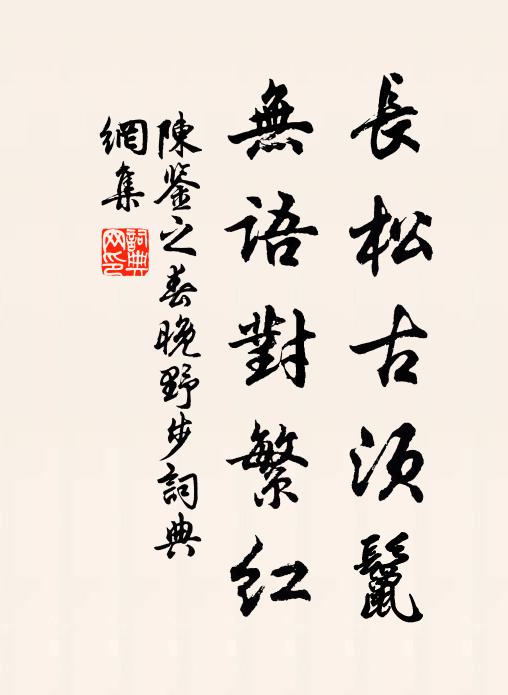 長松古須鬣
無語對繁紅
陳鑒之春晚野步詞典
網集
詞典
网印